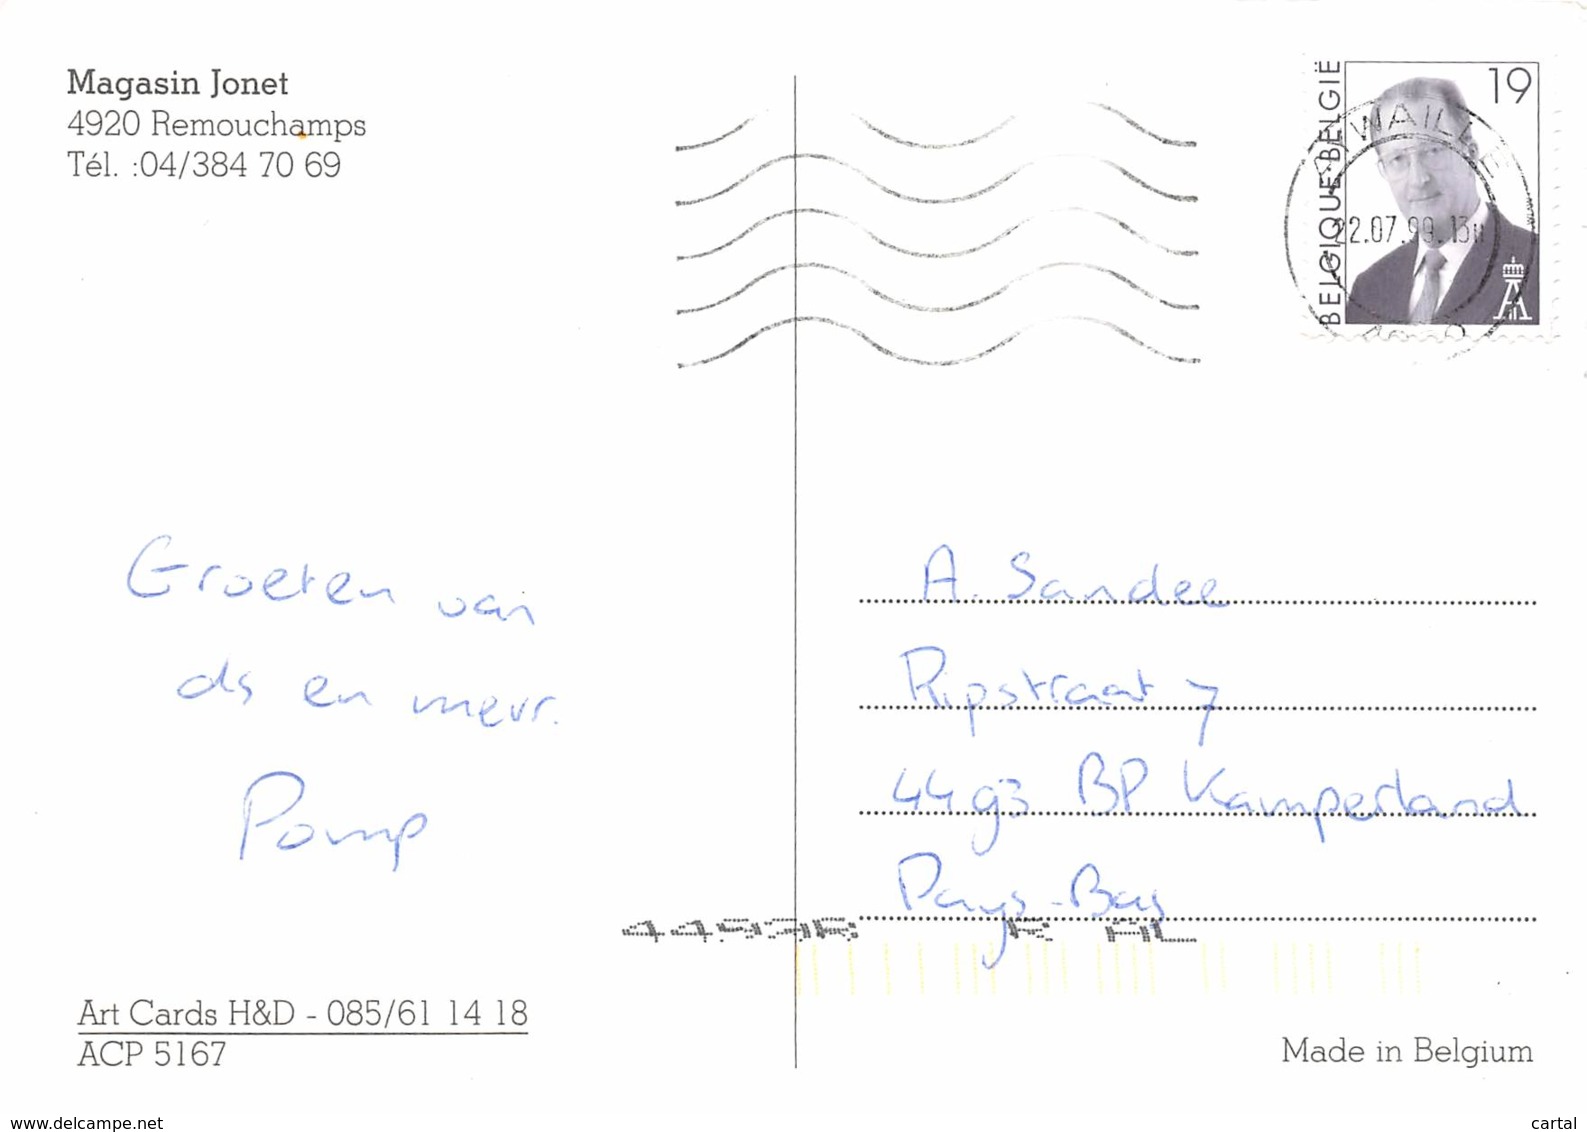 Magasin Jonet
4920 Remouchamps
Tél. :04/384 70 69
BELGIQUE·BELGIË
19
AYWAILLE
22.07.99.13
4920
Groeten van
ds en mevr.
Pomp
A. Sandee
Ripstraat 7
4493 BP Kamperland
Pays-Bas
K AL
Art Cards H&D - 085/61 14 18
ACP 5167
Made in Belgium
www.delcampe.net
cartal